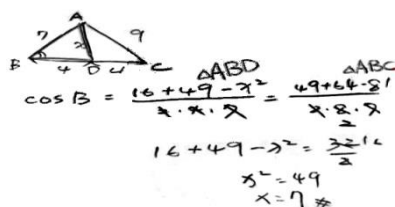 A
7 x 9
B 4 D 4 C
△ABD △ABC
cos B = 16 + 49 - x² / 2 · 4 · 7 = 49 + 64 - 81 / 2 · 8 · 7
2
16 + 49 - x² = 32 16 / 2
x² = 49
x = 7